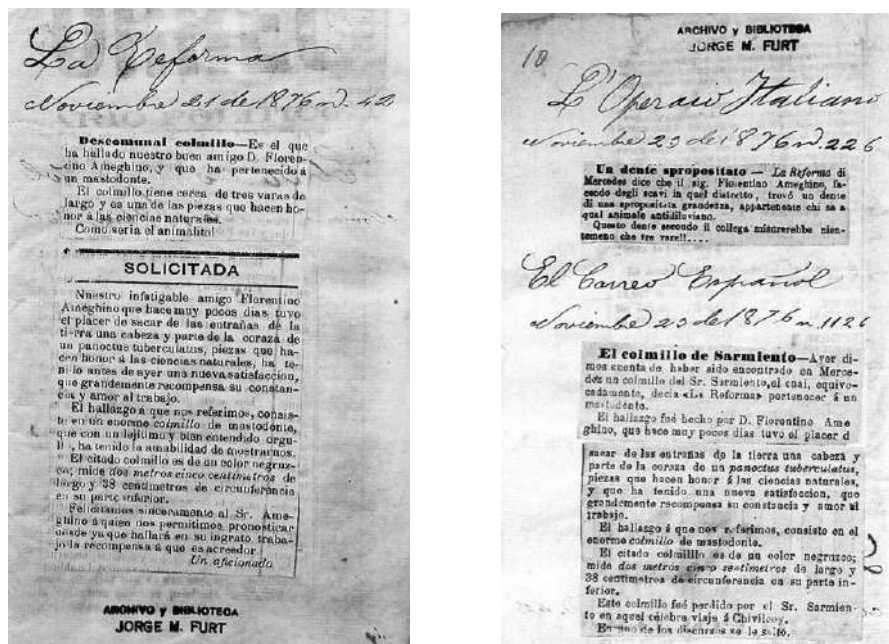 La Reforma
Noviembre 21 de 1876 n. 42
Descomunal colmillo—Es el que
ha hallado nuestro buen amigo D. Floren-
cino Ameghino, y que ha pertenecido á
un mastodonte.
El colmillo tiene cerca de tres varas de
largo y es una de las piezas que hacen ho-
nor á las ciencias naturales.
Como seria el animalito!
SOLICITADA
Nuestro infatigable amigo Florentino
Ameghino que hace muy pocos dias tuvo
el placer de sacar de las entrañas de la
tierra una cabeza y parte de la coraza de
un panoctus tuberculatus, piezas que ha-
cen honor á las ciencias naturales, ha te-
nido antes de ayer una nueva satisfaccion,
que grandemente recompensa su constan-
cia y amor al trabajo.
El hallazgo á que nos referimos, consis-
te en un enorme colmillo de mastodonte,
que con un lejítimo y bien entendido orgu-
llo, ha tenido la amabilidad de mostrarnos.
El citado colmillo es de un color negruz-
co; mide dos metros cinco centímetros de
largo y 38 centímetros de circunferencia
en su parte inferior.
Felicitamos sinceramente al Sr. Ame-
ghino á quien nos permitimos pronosticar
desde ya que hallará en su ingrato traba-
jo la recompensa á que es acreedor.
Un aficionado
ARCHIVO y BIBLIOTECA
JORGE M. FURT
ARCHIVO y BIBLIOTECA
JORGE M. FURT
10
L'Operaio Italiano
Noviembre 23 de 1876 n. 226
Un dente spropositato — La Reforma di
Mercedes dice che il sig. Florentino Ameghino, fa-
cendo degli scavi in quel distretto, trovó un dente
di una spropositata grandezza, appartenente chi sa a
qual animale antidiluviano.
Questo dente secondo il collega misurerebbe nien-
temeno che tre vare!!....
El Correo Español
Noviembre 23 de 1876 n. 1126
El colmillo de Sarmiento—Ayer di-
mos cuenta de haber sido encontrado en Merce-
des un colmillo del Sr. Sarmiento, el cual, equivo-
cadamente, decia «La Reforma» pertenecer á un
mastodonte.
El hallazgo fué hecho por D. Florentino Ame
ghino, que hace muy pocos dias tuvo el placer d
sacar de las entrañas de la tierra una cabeza y
parte de la coraza de un panoctus tuberculatus,
piezas que hacen honor á las ciencias naturales,
y que ha tenido una nueva satisfaccion, que
grandemente recompensa su constancia y amor al
trabajo.
El hallazgo á que nos referimos, consiste en el
enorme colmillo de mastodonte.
El citado colmilllo es de un color negruzco;
mide dos metros cinco centímetros de largo y
38 centímetros de circunferencia en su parte in-
ferior.
Este colmillo fué perdido por el Sr. Sarmien-
to en aquel célebre viaje á Chivilcoy.
En uno de los discursos se le saltó.